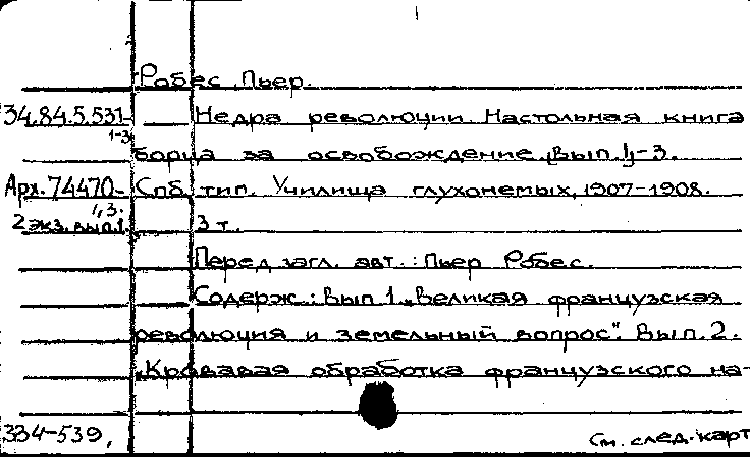 Робес, Пьер.
34.84.5.531- Недра революции. Настольная книга
1-3
борца за освобождение. Вып. 1-3.
Арх. 74470- Спб. тип. Училища глухонемых, 1907-1908.
1,3.
2 экз. вып.1. 3 т.
Перед загл. авт.: Пьер Робес.
Содерж.: Вып 1 „Великая французская
революция и земельный вопрос". Вып. 2.
„Кровавая обработка французского на-
334-539,
См. след. карт